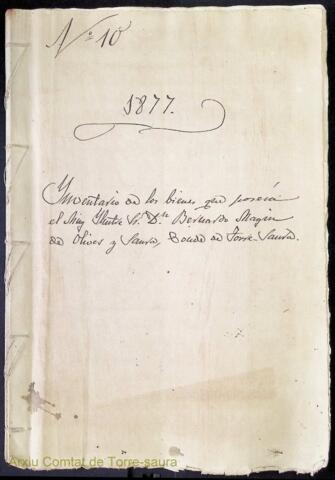 Nº 10
1877.
Ynventario de los bienes que poseia
el Muy Ilutre Sr. Dn. Bernardo Magin
de Olives y Saura, Conde de Torre-Saura.
Arxiu Comtat de Torre-saura